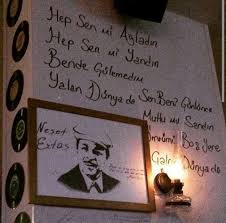 Hep Sen mi Ağladın
Hep Sen mi Yandın
Bende Gülemedim
Yalan Dünya da
Sen Beni Gönlünce
Mutlu mu Sandın
Ömrümü Boş Yere
Dünya da
Neşet
Ertaş